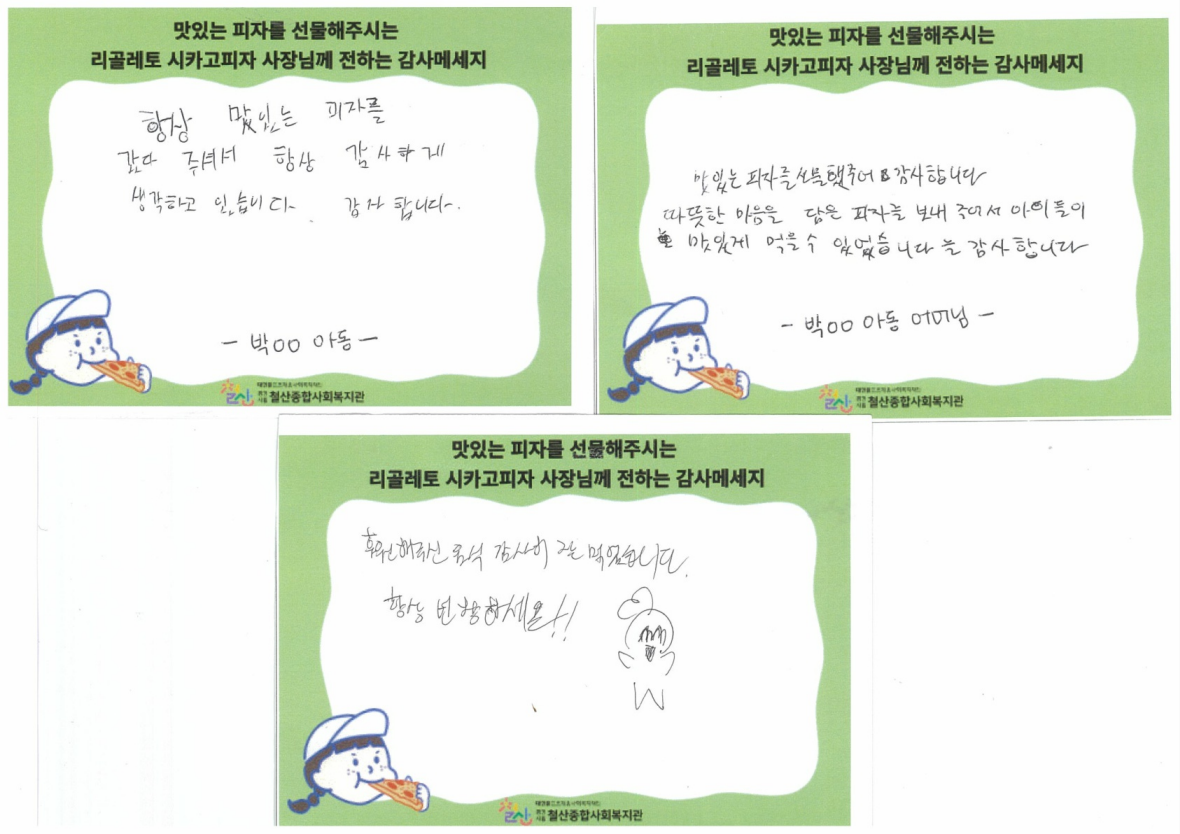 맛있는 피자를 선물해주시는
리골레토 시카고피자 사장님께 전하는 감사메세지
항상 맜있는 피자를
갔다 주셔서 항상 감사하게
생각하고 있습니다. 감사 합니다.
- 박OO 아동 -
철산종합사회복지관
맛있는 피자를 선물해주시는
리골레토 시카고피자 사장님께 전하는 감사메세지
맛있는 피자를 선물했주어 감사합니다
따뜻한 마음을 담은 피자를 보내 주어서 아이들이
맛있게 먹을 수 있었습니다 늘 감사합니다
- 박OO 아동 어머님 -
철산종합사회복지관
맛있는 피자를 선물해주시는
리골레토 시카고피자 사장님께 전하는 감사메세지
후원해주신 음식 감사히 먹었습니다.
항상 번창하세요!!
철산종합사회복지관